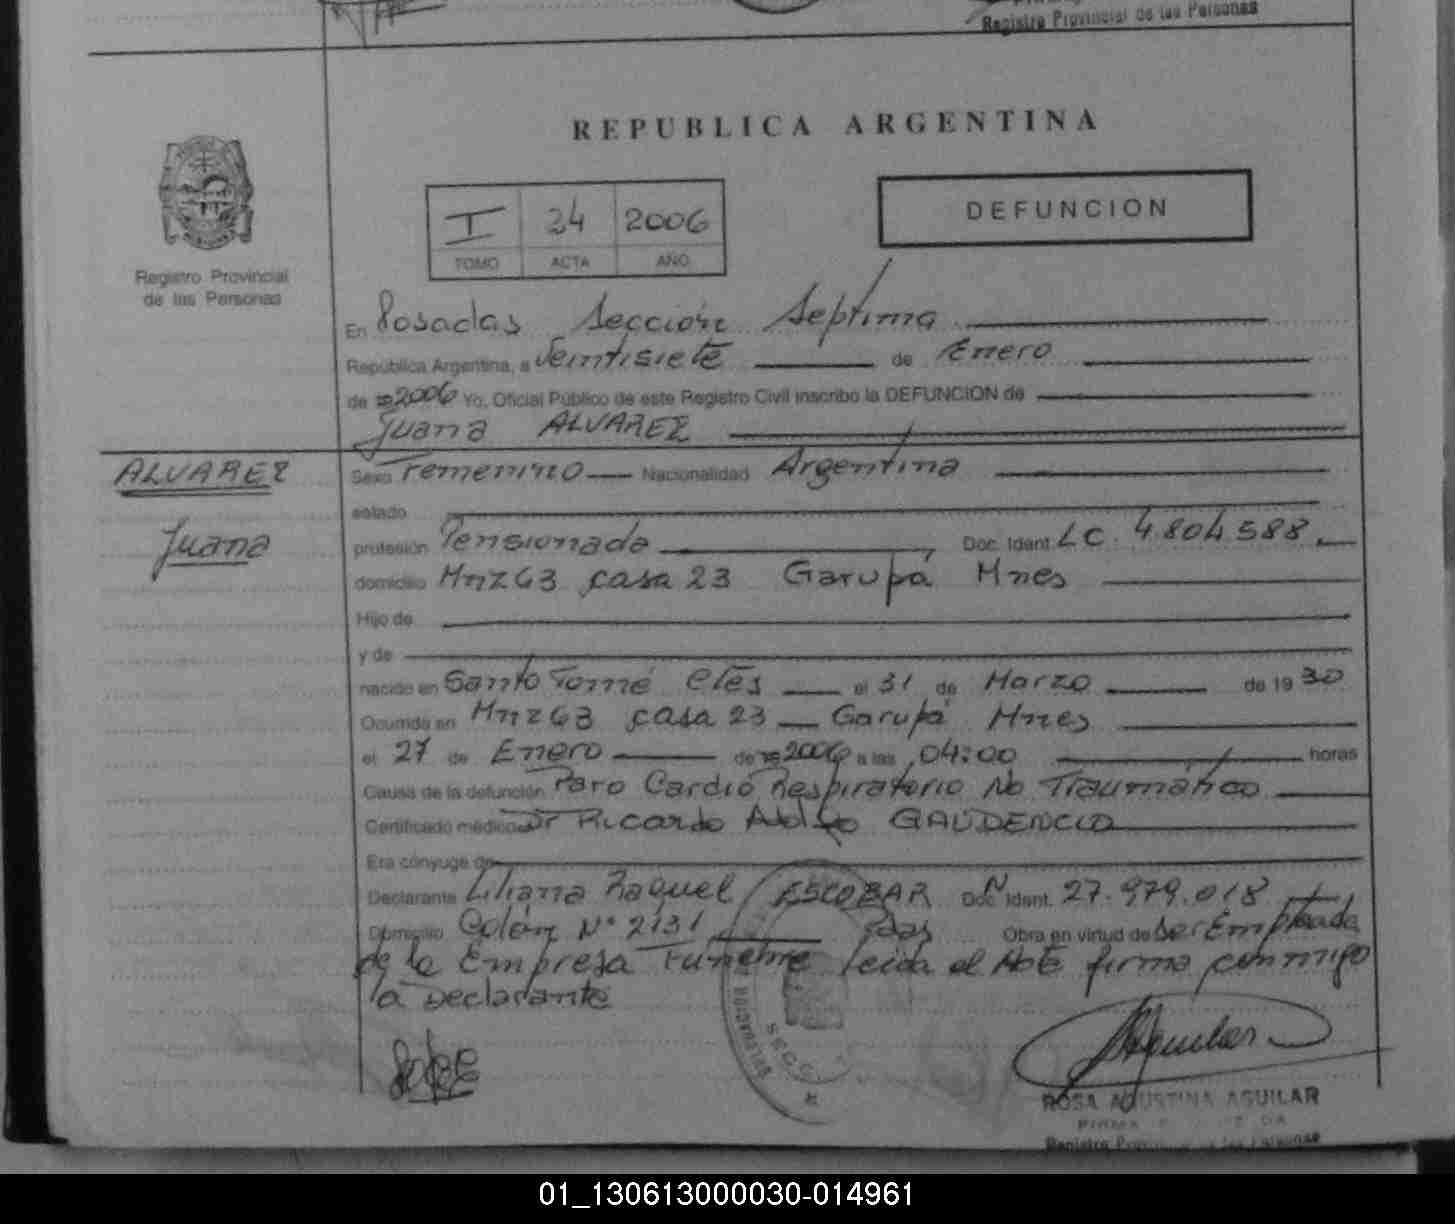 Registro Provincial de las Personas
REPUBLICA ARGENTINA
I 34 2006
TOMO ACTA AÑO
DEFUNCION
Registro Provincial
de las Personas
En Posadas Sección Septima
República Argentina, a Veintisiete de Enero
de 2006 Yo, Oficial Público de este Registro Civil inscribo la DEFUNCION de
Juana ALVAREZ
ALVAREZ
Juana
Sexo Femenino Nacionalidad Argentina
estado
profesión Pensionada Doc. Ident. LC. 4.804.588.
domicilio Mnz 63 casa 23 Garupá Mnes
Hijo de
y de
nacido en Santo Tomé Ctes el 31 de Marzo de 1930
Ocurrida en Mnz 63 casa 23 Garupá Mnes
el 27 de Enero de 2006 a las 04:00 horas
Causa de la defunción Paro Cardio Respiratorio No Traumático
Certificado médico Dr Ricardo Adolfo GAUDENCIO
Era cónyuge de
Declarante Liliana Raquel ESCOBAR Doc. Ident. 27.979.018
Domicilio Colón Nº 2131 Pdas Obra en virtud de ser Empleada
de la Empresa Funebre leida el Acta firma conmigo
la Declarante
ROSA AGUSTINA AGUILAR
Registro Provincial de las Personas
01_130613000030-014961